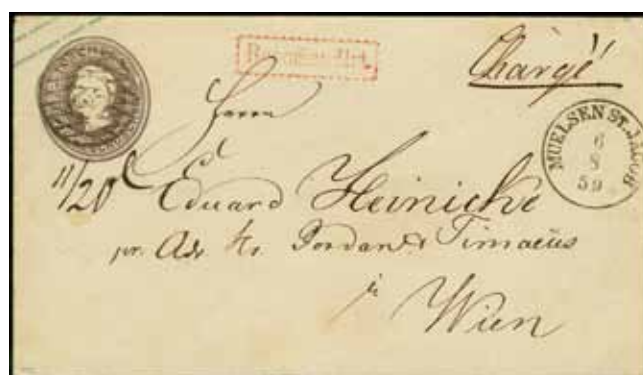 Chargé
Herrn
MUELSEN ST. JACOB
6
8
59
11/20
Eduard Heinicke
pr. Adr. Hr. Jordan & Timaeus
in Wien